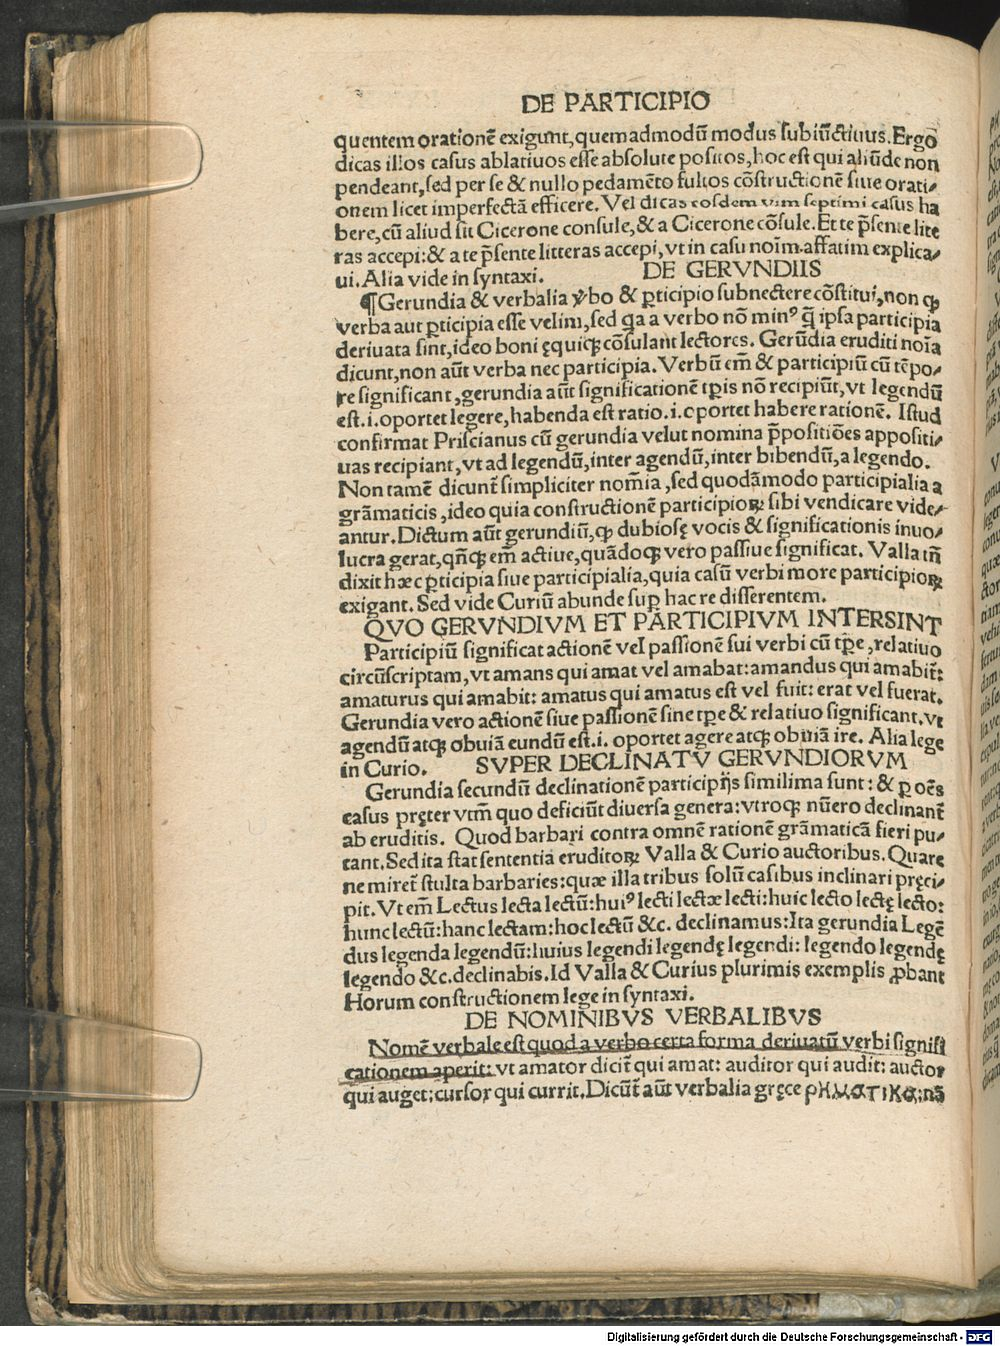 DE PARTICIPIO
quentem orationē exigunt, quemadmodū modus subiūctiuus. Ergo
dicas illos casus ablatiuos esse absolute positos, hoc est qui aliūde non
pendeant, sed per se & nullo pedamēto fultos cōstructionē siue orati⸗
onem licet imperfectā efficere. Vel dicas eosdem vim septimi casus ha
bere, cū aliud sit Cicerone consule, & a Cicerone cōsule. Et te p̄sente litte
ras accepi: & a te p̄sente litteras accepi, vt in casu noīm affatim explica⸗
ui. Alia vide in syntaxi. DE GERVNDIIS
¶Gerundia & verbalia v̄bo & ꝑticipio subnectere cōstitui, non ꝙ
verba aut ꝑticipia esse velim, sed q̄a a verbo nō minꝰ q̄ ipsa participia
deriuata sint, ideo boni ęquiqꝫ cōsulant lectores. Gerūdia eruditi noīa
dicunt, non aūt verba nec participia. Verbū em̄ & participiū cū tēpo⸗
re significant, gerundia aūt significationē tꝑis nō recipiūt, vt legendū
est .i. oportet legere, habenda est ratio .i. oportet habere rationē. Istud
confirmat Priscianus cū gerundia velut nomina p̄positiōes appositi⸗
uas recipiant, vt ad legendū, inter agendū, inter bibendū, a legendo.
Non tamē dicunt̄ simpliciter nom̄ia, sed quodāmodo participialia a
grāmaticis, ideo quia constructionē participioꝝ sibi vendicare vide⸗
antur. Dictum aūt gerundiū, ꝙ dubiosę vocis & significationis inuo⸗
lucra gerat, qn̄qꝫ em̄ actiue, quādoqꝫ vero passiue significat. Valla tn̄
dixit hæc ꝑticipia siue participialia, quia casū verbi more participioꝝ
exigant. Sed vide Curiū abunde suꝑ hac re disserentem.
QVO GERVNDIVM ET PARTICIPIVM INTERSINT
Participiū significat actionē vel passionē sui verbi cū tꝑe, relatiuo
circūscriptam, vt amans qui amat vel amabat: amandus qui amabit̄:
amaturus qui amabit: amatus qui amatus est vel fuit: erat vel fuerat.
Gerundia vero actionē siue passionē sine tꝑe & relatiuo significant, vt
agendū atqꝫ obuiā eundū est .i. oportet agere atqꝫ obuiā ire. Alia lege
in Curio. SVPER DECLINATV GERVNDIORVM
Gerundia secundū declinationē participijs similima sunt: & ꝑ oēs
casus pręter vtm̄ quo deficiūt diuersa genera: vtroqꝫ nūero declinant̄
ab eruditis. Quod barbari contra omnē rationē grāmaticā fieri pu⸗
tant. Sed ita stat sententia eruditoꝝ Valla & Curio auctoribus. Quare
ne miret̄ stulta barbaries: quæ illa tribus solū casibus inclinari pręci⸗
pit. Vt em̄ Lectus lecta lectū: huiꝰ lecti lectæ lecti: huic lecto lectę lecto:
hunc lectū: hanc lectam: hoc lectū &c. declinamus: Ita gerundia Legē
dus legenda legendū: huius legendi legendę legendi: legendo legendę
legendo &c. declinabis. Id Valla & Curius plurimis exemplis ꝓbant
Horum constructionem lege in syntaxi.
DE NOMINIBVS VERBALIBVS
Nomē verbale est quod a verbo certa forma deriuatū verbi signifi
cationem aperit: vt amator dicit̄ qui amat: auditor qui audit: auctor
qui auget: cursor qui currit. Dicūt̄ aūt verbalia gręce ρηματικα: nā
Digitalisierung gefördert durch die Deutsche Forschungsgemeinschaft - DFG